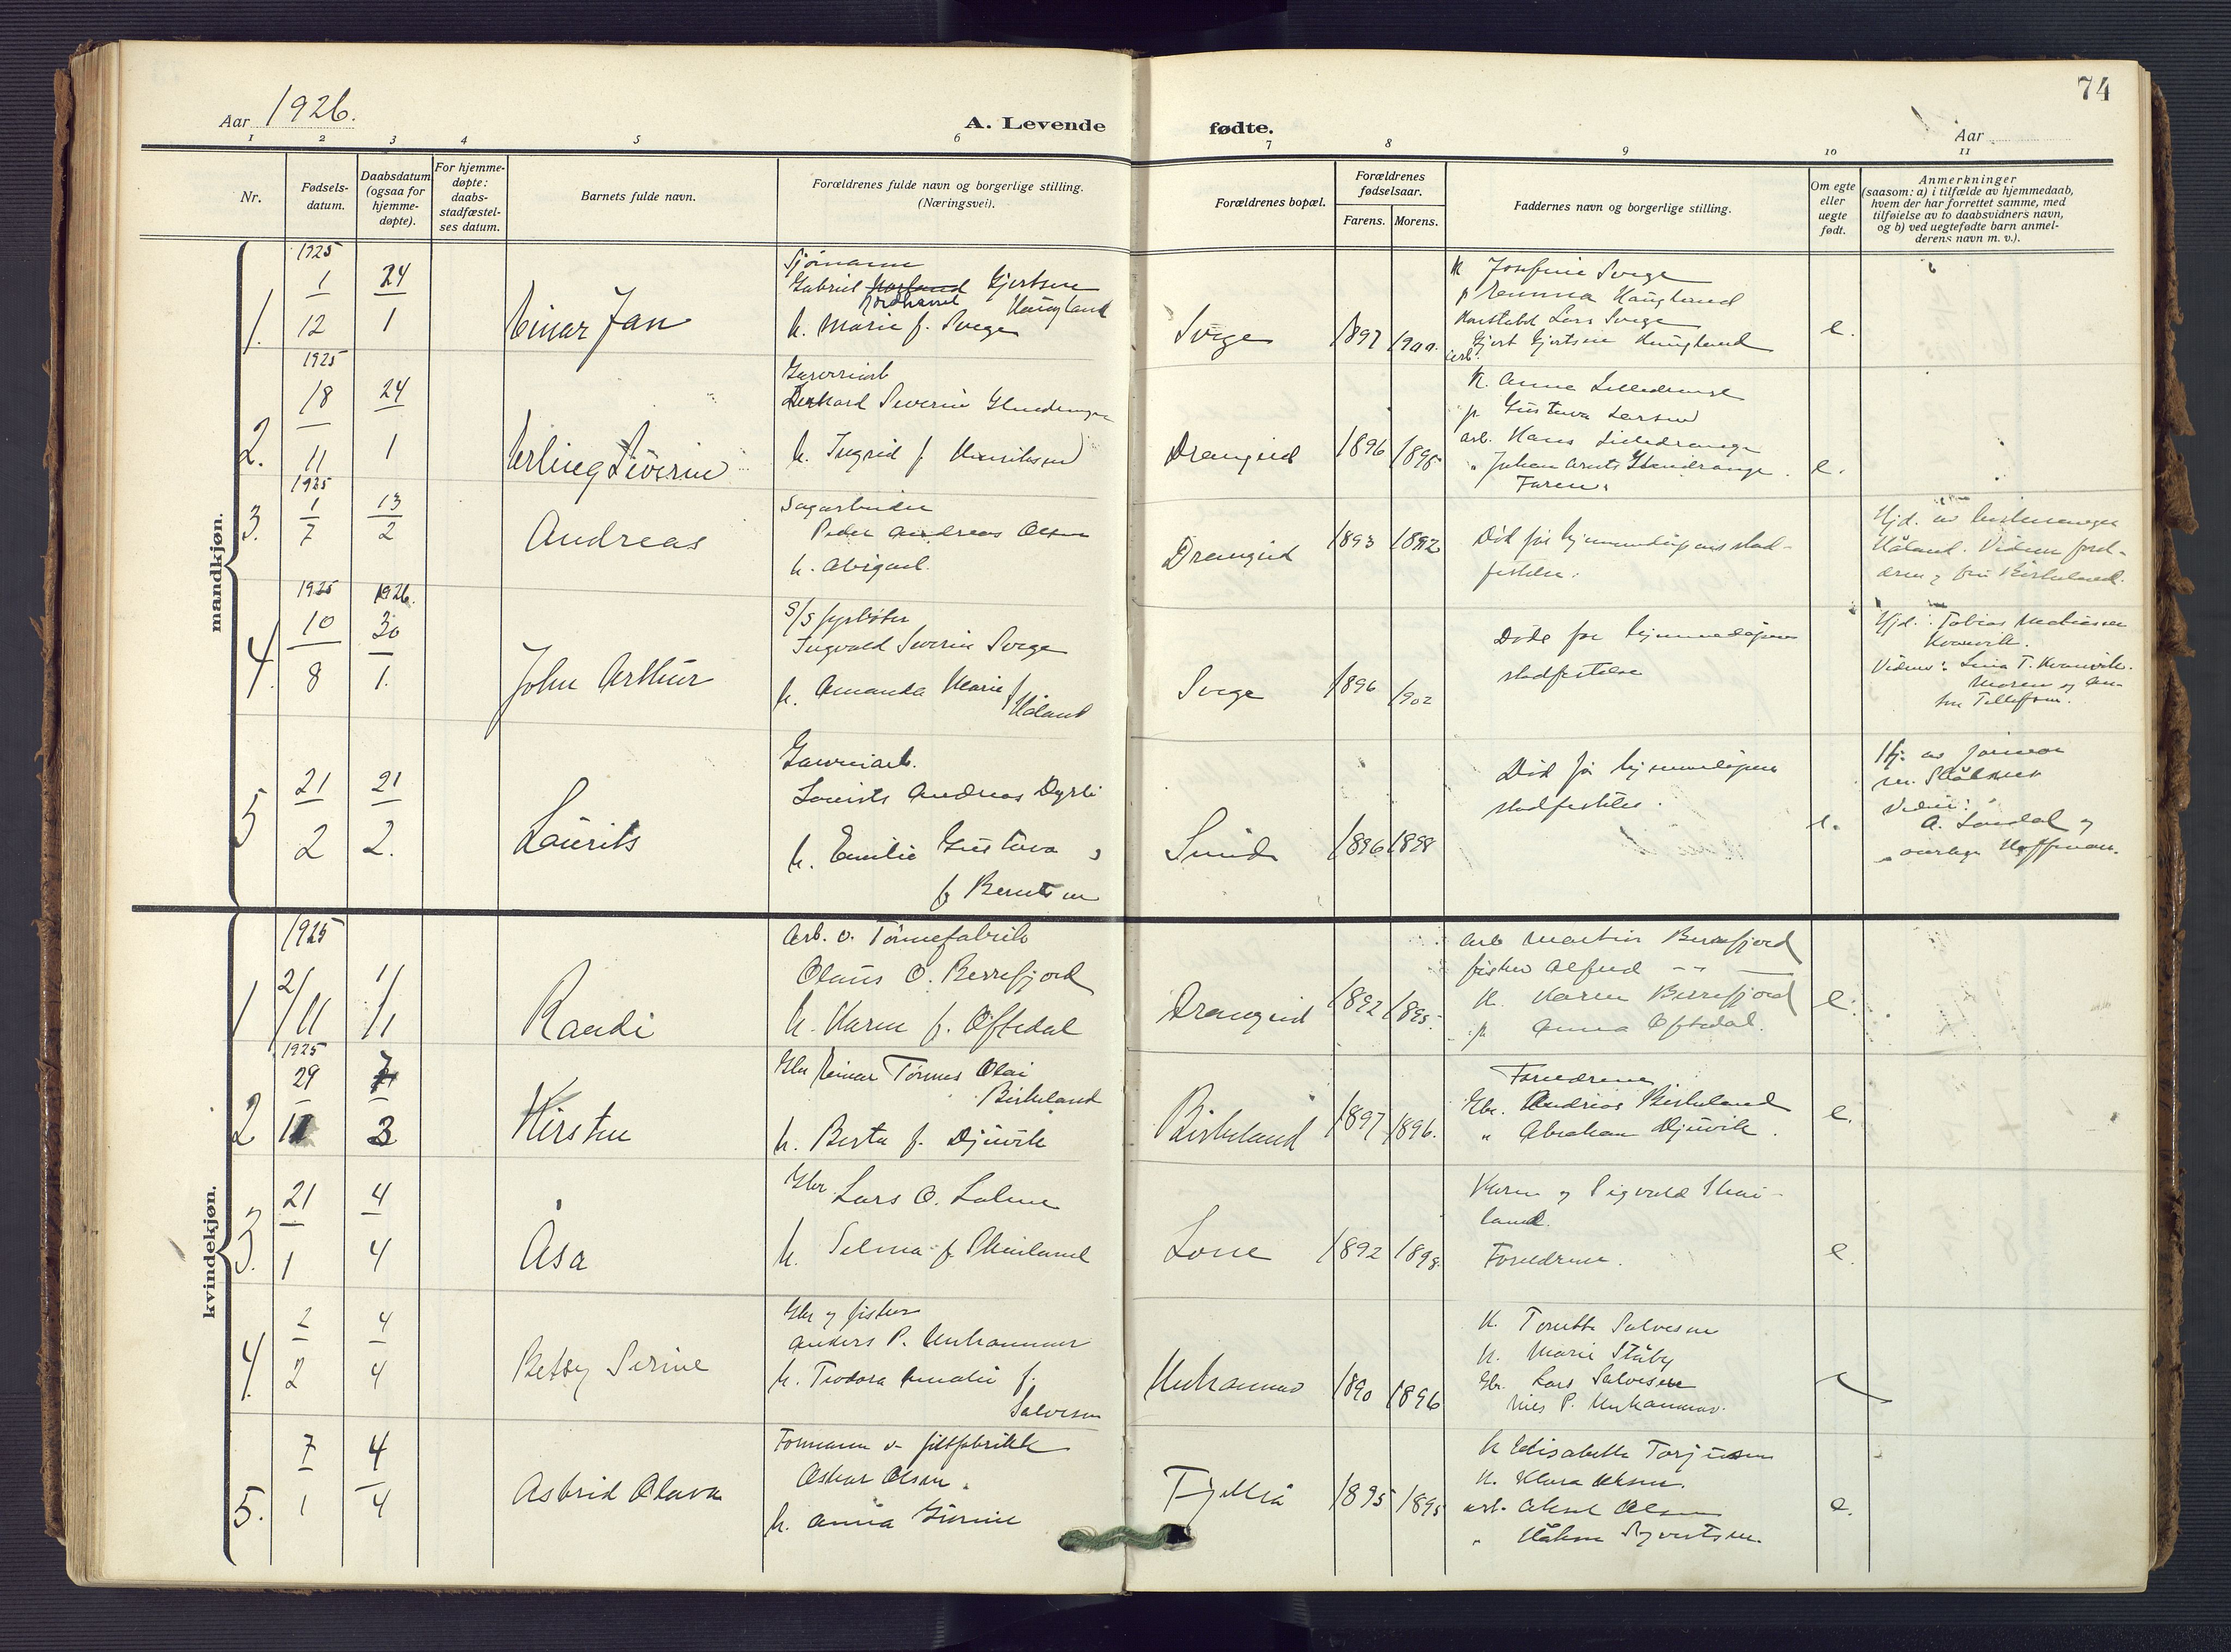 74
Aar 1926.
A. Levende fødte.
Aar
1 2 3 4 5 6 7 8 9 10 11
Nr.
Fødsels-
datum.
Daabsdatum
(ogsaa for
hjemme-
døpte).
For hjemme-
døpte:
daabs-
stadfæstel-
ses datum.
Barnets fulde navn.
Forældrenes fulde navn og borgerlige stilling.
(Næringsvei).
Forældrenes bopæl.
Forældrenes
fødselsaar.
Farens. Morens.
Faddernes navn og borgerlige stilling.
Om egte
eller
uegte
født.
Anmerkninger
(saasom: a) i tilfælde av hjemmedaab,
hvem der har forrettet samme, med
tilføielse av to daabsvidners navn,
og b) ved uegtefødte barn anmel-
derens navn m. v.).
mandkjøn.
1.
1925
1
12
24
1
Einar Jan
Sjømann
Gabriel Gjertsen
Haugland
h. Marie f. Svege
Svege
1897
K Josefine Svege
p Emma Haugland
Lars Svege
Gjert Gjertsen Haugland
e.
2.
1925
18
11
24
1
Erling Severin
Garveriarb
Severin
h. Ingrid f Henriksen
Drangeid
1896
1898
K. Anna Lilledrange
p Gustava Larsen
arb. Hans Lilledrange
Faren.
e.
3.
1925
1
7
13
2
Andreas
Sagarbeider
Peder Andreas Olsen
h. Abigael.
Drangeid
1893
1892
Død før hjemmedåpens stad-
festelse.
Hjd. av
Håland. Vidner foreld-
rene og fru Birkeland.
4.
1925
10
8
1926.
30
1.
John Arthur
S/S fyrbøter
Ingvald Severin Svege
h. Amanda Marie f
Håland
Svege
1896
1902
Døde før hjemmedåpens
stadfestelse
Hjd.: Tobias Mathiassen
Kvanvik.
Vidner: Lina T. Kvanvik.
Moren og An-
Tellefsen.
5
21
2
21
2.
Laurits
Garveriarb.
Laurits Andreas Dyrli
h. Emilie Gustava
f Berntsen
Sunde
1896
1898
Død før hjemmedåpens
stadfestelse.
e.
Hj. av jormor
Vidner:
A. og
Hoffman.
kvindekjøn.
1
1925
2/11
1/1
Randi
Arb. v. Tønnefabrik
Olaus O. Berrefjord
h. Karen f. Øftedal
Drangeid
1892
1895.
Arb Martin Berrefjord
fisker Alfred -- --
K. Karen Berrefjord
p Anna Øftedal.
e.
2
1925
29
11
7
3
Kirsten
Gbr Einar Tønnes Olai
Birkeland
h. Berta f. Djuvik
Birkeland
1897
1896.
Foreldrene
Gbr. Andreas Birkeland
" Abraham Djuvik.
e.
3.
21
1
4
4
Åsa
Gbr Lars O. Lolune
h. Selma f. Skailand
Lone
1892
1898.
Karen og Sigvald Skai-
land.
Foreldrene.
e.
4.
2
2
4
4
Betsy Serine
Gbr og fisker
Anders P. Unhammer
h. Teodora Amalie f.
Salvesen
Unhammer
1890
1896
K. Tomette Salvesen
h. Marie Ståby
Gbr. Lars Salvesen
Nils P. Unhammer.
5.
7
1
4
4
Astrid Olava
Formann v. filtfabrikk
Oskar Olsen.
h. Anna
Fjellså
1895
1895
h Elisabeth Torjussen
h. Klara Olsen.
arb. Aksel Olsen
" Håkon Syvertsen.
e.